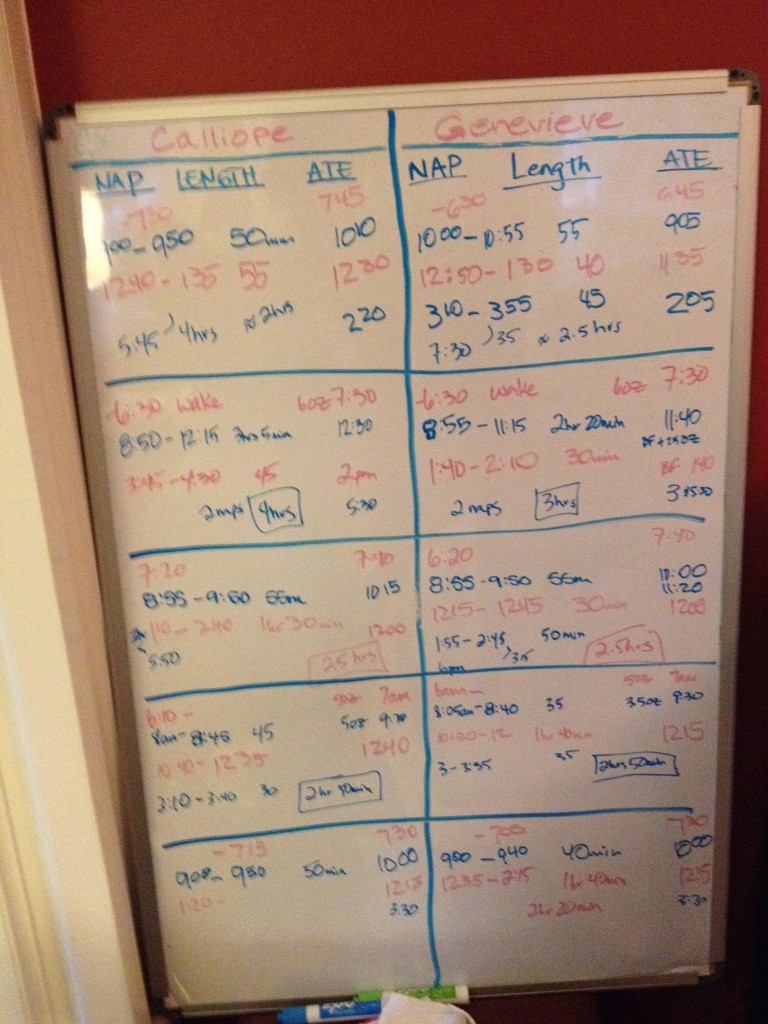 Calliope
NAP LENGTH ATE
-730 745
900-950 50min 1010
1240-135 55 1230
5:45 4hrs ≈ 2hrs 220
-6:30 wake 6oz 7:30
8:50-12:15 12:30
3:45-4:30 45 2pm
2 naps 4hrs 5:30
7:20 7:40
8:55-9:50 55m 1015
1:10-240 1hr 30min 1200
5:50 2.5hrs
6:10- 5oz 7am
8am-8:45 45 5oz
10:40-1235 1240
3:10-3:40 30 2hr 50min
-715 730
900-950 50min 1000
1:20- 1215
3:30
Genevieve
NAP Length ATE
-630 645
1000-10:55 55 905
12:50-130 40 1135
310-355 45 205
7:30 35 ≈ 2.5hrs
-6:30 wake 6oz 7:30
8:55-11:15 2hr 20min 11:40
1:40-2:10 30min BF 140
2 naps 3hrs
6:20 7:40
8:55-9:50 55m 10:00
11:20
1215-1245 30min 1200
1:55-2:45 50min 2.5hrs
6pm 35
6am- 5oz 7am
8:05am-8:40 35 3.5oz 9:30
10:20-12 1hr 40min 1215
3-3:35 35 2hrs 50min
-700 730
900-940 40min 1000
1235-215 1hr 40min 1215
2hr 20min 3:30